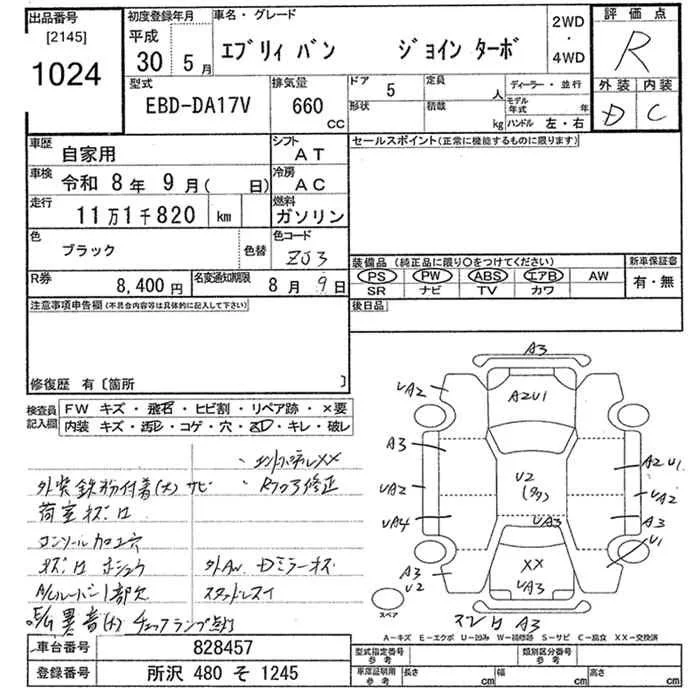 出品番号
[2145]
1024
初度登録年月
平成
30 5月
車名・グレード
エブリィ バン ジョイン ターボ
2WD
・
4WD
評価点
R
外装 内装
D C
型式
EBD-DA17V
排気量
660
CC
ドア
5
定員
人
形状
積載
kg
ディーラー・並行
モデル年式
年
ハンドル 左・右
車歴
自家用
シフト
AT
セールスポイント(正常に機能するものに限ります)
車検
令和 8年 9月( 日)
冷房
AC
走行
11万1千820 km
燃料
ガソリン
色
ブラック
色替
色コード
ZJ3
装備品(純正品に限り○をつけてください)
新車保証書
PS PW ABS エアB AW
有・無
SR ナビ TV カワ
R券
8,400円
名変通知期限
8月 9日
注意事項申告欄(不具合内容等は具体的に記入して下さい)
後日品
修復歴 有〔箇所 〕
検査員
記入欄
FW キズ・飛石・ヒビ割・リペア跡・×要
内装 キズ・汚レ・コゲ・穴・スレ・キレ・破レ
・エンドパネルXX
外装鉄粉付着(大) サビ
・Rフロア修正
荷室キズ凹
コンソール加工穴
キズ凹 ホシュウ
外AW Dミラーキズ
A/Cルーバー1部欠
スタッドレスタイ
E/G異音(大) チェックランプ点灯
A3
UA2
A2U1
A3
A2U1
U2
(多)
UA2
UA2
UA4
UA3
A3
U1
A3
U2
XX
UA3
スペア
スレ凹 A3
A-キズ E-エクボ U-凹み W-補修跡 S-サビ C-腐食 XX-交換済
車台番号
828457
型式指定番号
参考
類別区分番号
参考
登録番号
所沢 480 そ 1245
車庫証明用
参考
長さ cm
幅 cm
高さ cm